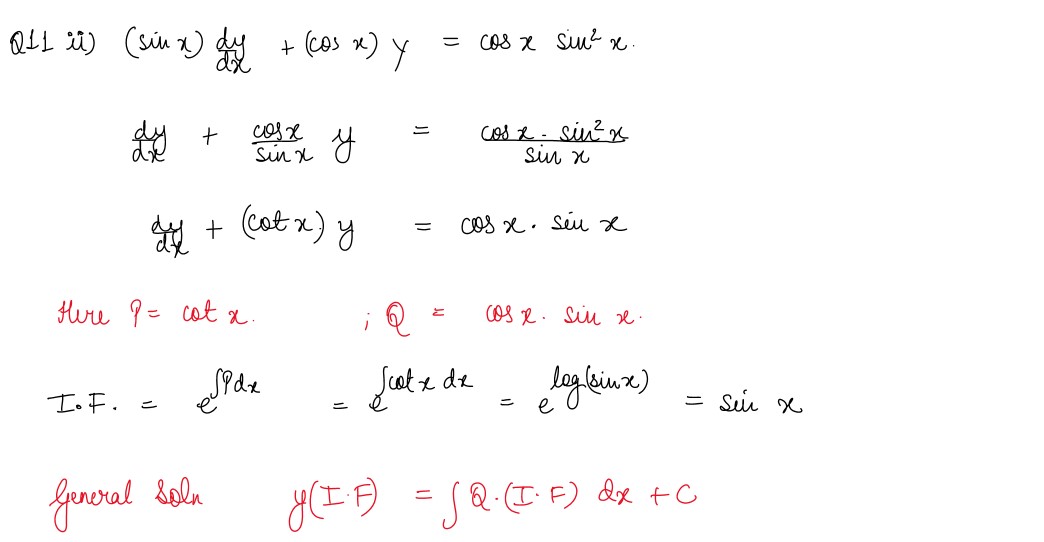 Q11 ii) (sin x) dy/dx + (cos x) y = cos x sin² x.
dy/dx + cos x/sin x y = cos x . sin² x/sin x
dy/dx + (cot x) y = cos x . sin x
Here P = cot x. ; Q = cos x . sin x.
I.F. = e^∫Pdx = e^∫cot x dx = e^log(sin x) = sin x
General Soln y(I.F) = ∫Q.(I.F) dx + C